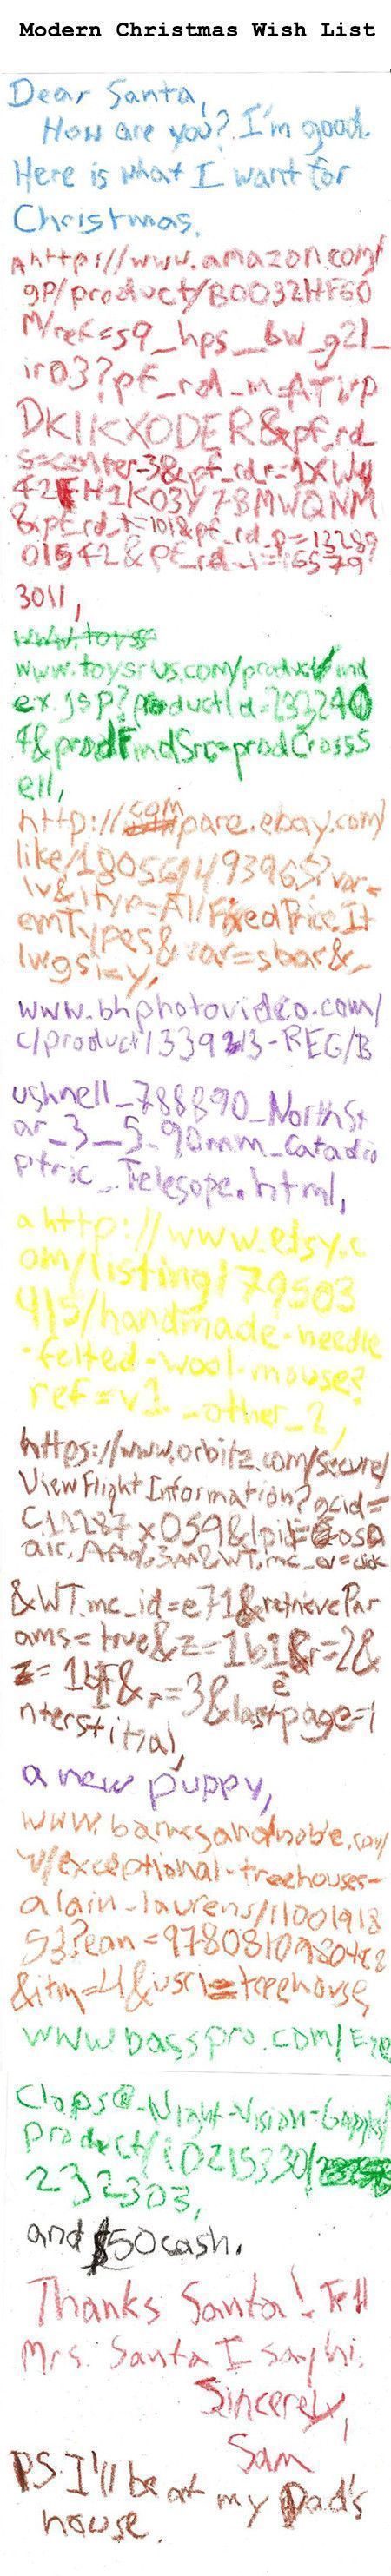 Modern Christmas Wish List
Dear Santa,
How are you? I'm good.
Here is what I want for
Christmas.
A http://www.amazon.com/
gp/product/B0032HF60
M/ref=s9_hps_bw_g21_
ir03?pf_rd_m=ATVP
DKIKX0DER&pf_rd_
s=center-3&pf_rd_r=1XW4
42FH1K03Y7BMWQNM
&pf_rd_t=101&pf_rd_p=13289
01542&pf_rd_i=16579
3011,
www.toyss
www.toysrus.com/product/ind
ex.jsp?productId=233240
4&prodFindSrc=prodCrossS
ell,
http://compare.ebay.com/
like/180561493965?var=
lv&ltyp=AllFixedPriceIt
emTypes&var=sbar&_
lwgsi=y,
www.bhphotovideo.com/
c/product/1339213-REG/B
ushnell_788890_NorthSt
ar_3_5_90mm_Catadio
ptric_Telesope.html,
a http://www.etsy.c
om/listing/79503
415/handmade-needle
-felted-wool-mouse?
ref=v1_other_2,
https://www.orbitz.com/Secure/
ViewFlightInformation?gcid=
&WT.mc_id=e71&retrievePar
ams=true&z=1b1&r=2&
z=1bf&r=3&lastpage=i
nterstitial,
a new puppy,
www.barnesandnoble.com/
w/exceptional-treehouses-
alain-laurens/11001918
53?ean=9780810980488
&itm=4&usri=treehouse,
www.basspro.com/Eye
Clops®-Night-Vision-Goggles/
product/10215330/
232303,
and $50 cash.
Thanks Santa! Tell
Mrs. Santa I say hi.
Sincerely,
Sam
PS I'll be at my Dad's
house.